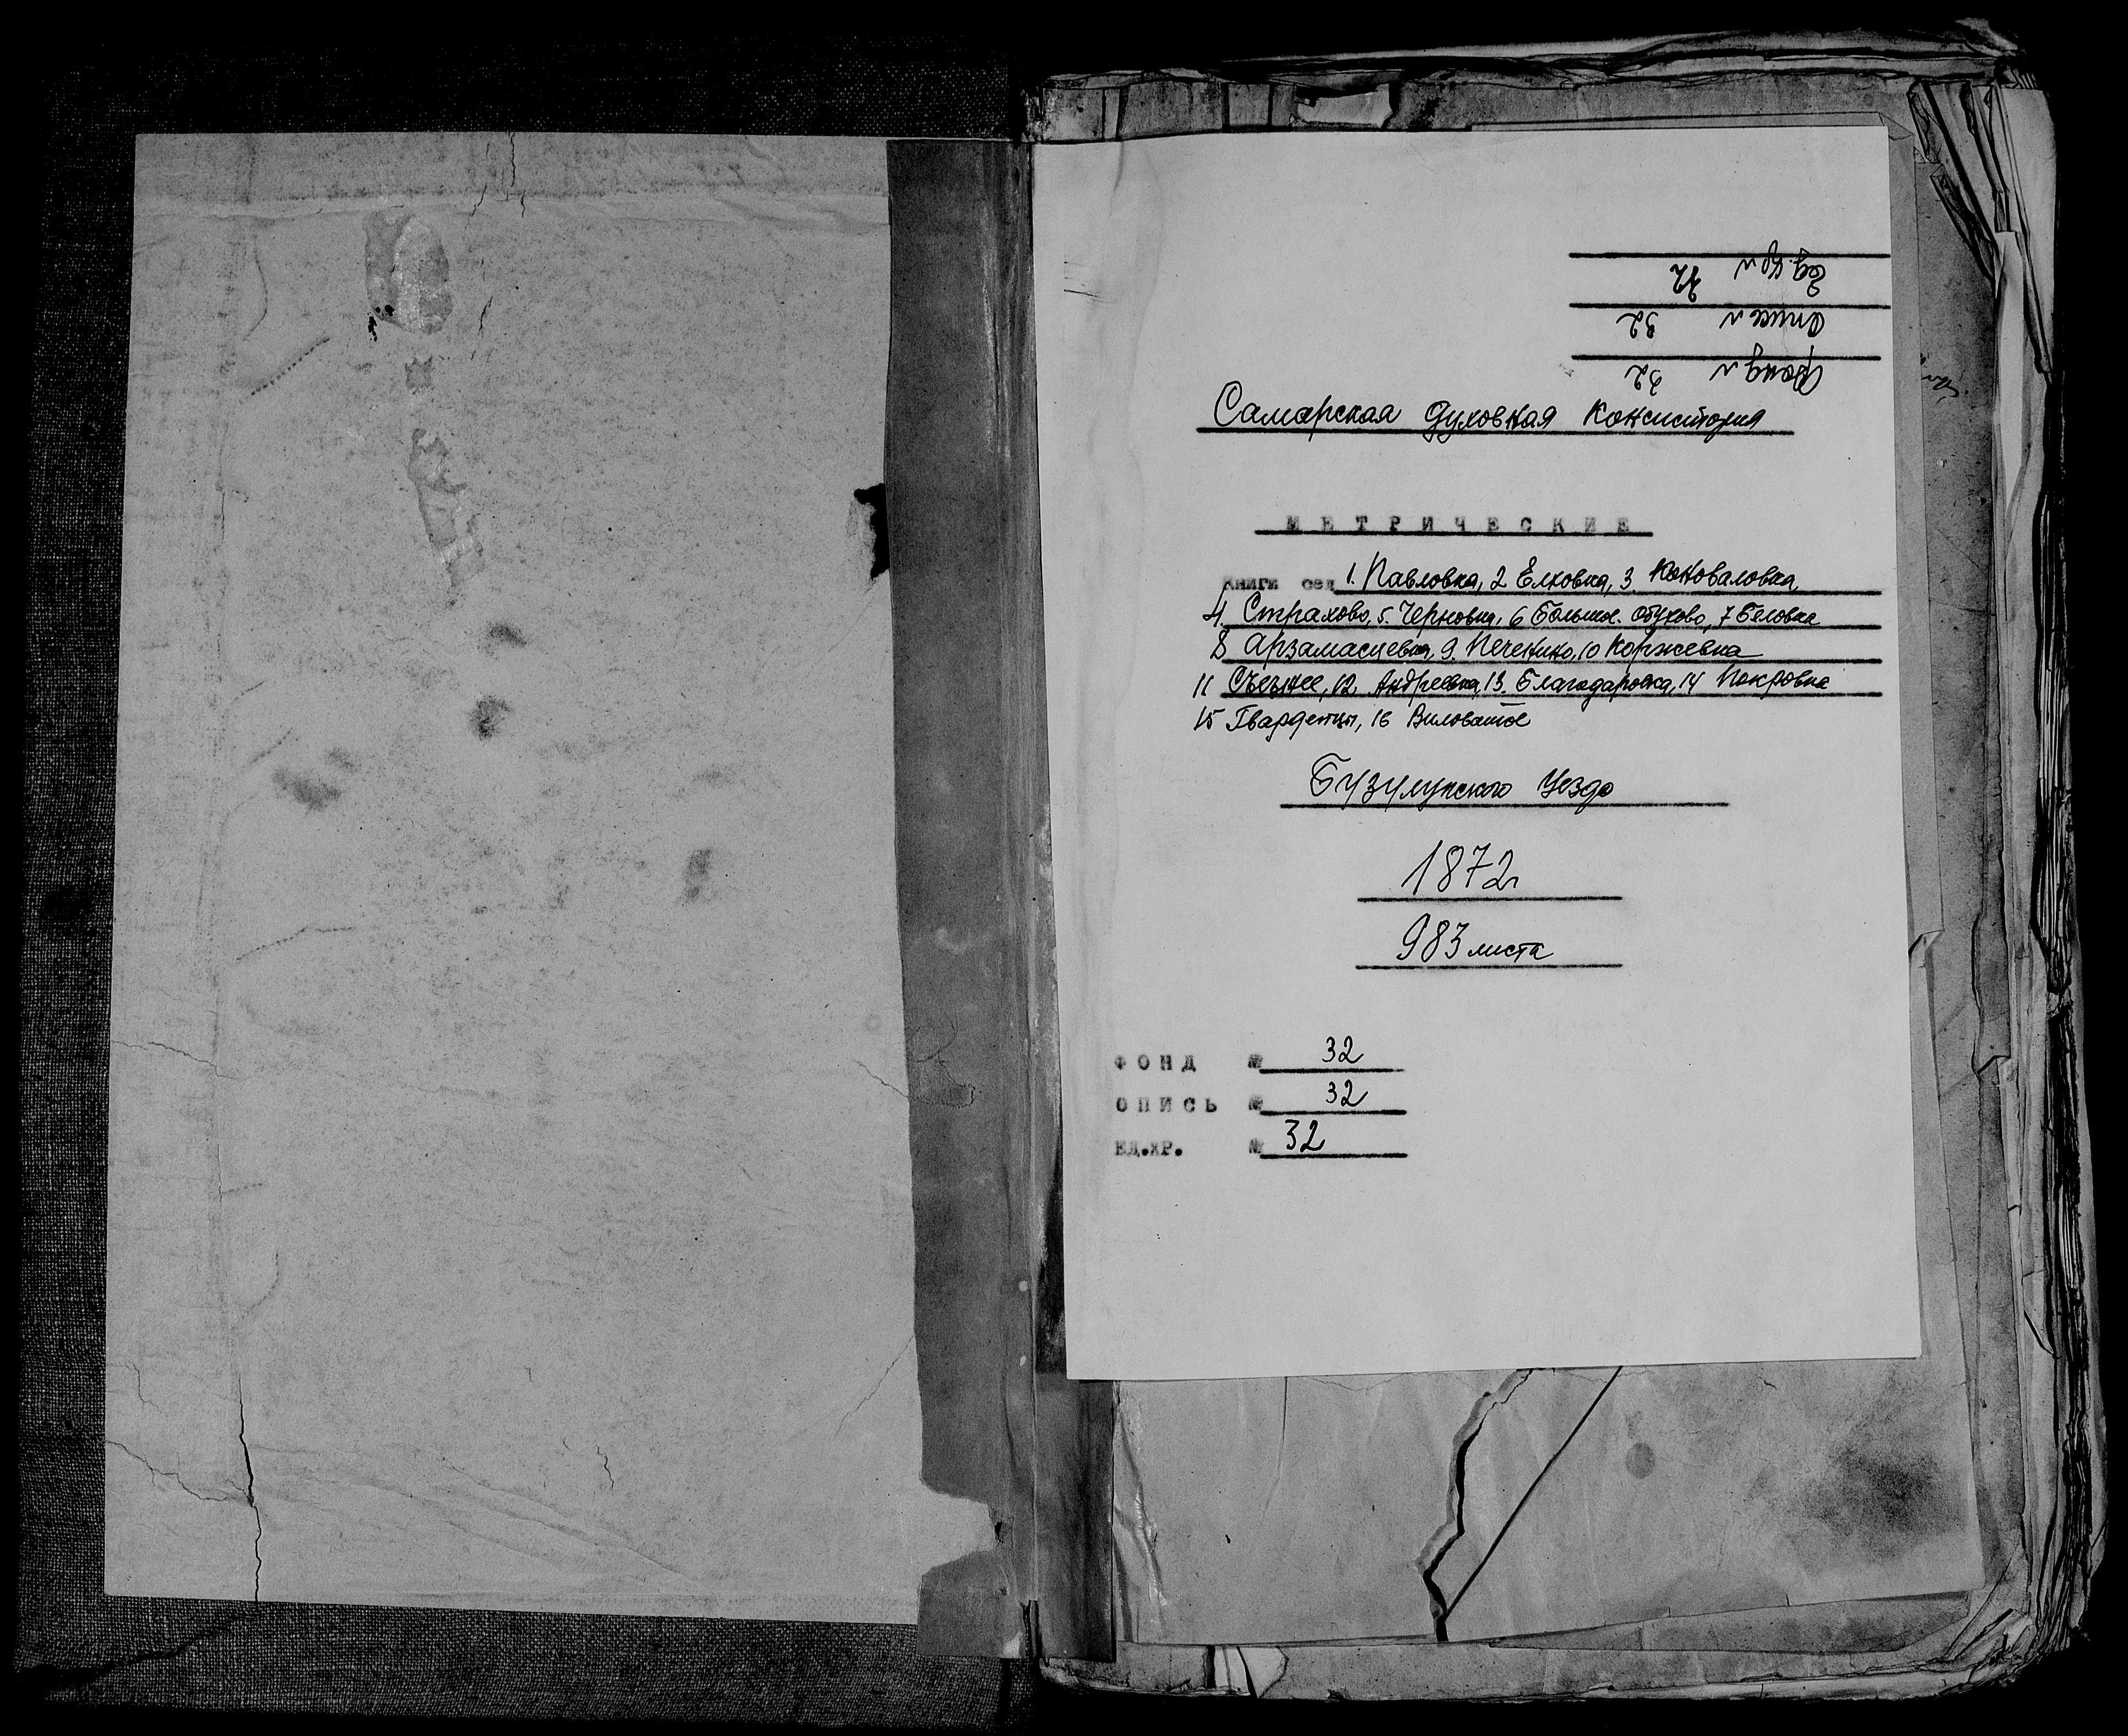 Ед. хр. №
Опись № 32
Фонд № 32
Самарская Духовная Консистория
МЕТРИЧЕСКИЕ
книги сел 1. Павловка, 2 Елховка, 3. Коноваловка,
4. Страхово, 5. Черновка, 6 Больше. Обухово, 7 Беловка
8 Арзамасцевка, 9. Печенино, 10 Коржевка
11 Съезжее, 12. Андреевка, 13. Благодаровка, 14 Покровка
15 Гвардейцы, 16 Виловатое
Бузулукского Уезда
1872
983 листа
ФОНД № 32
ОПИСЬ № 32
ЕД.ХР. № 32